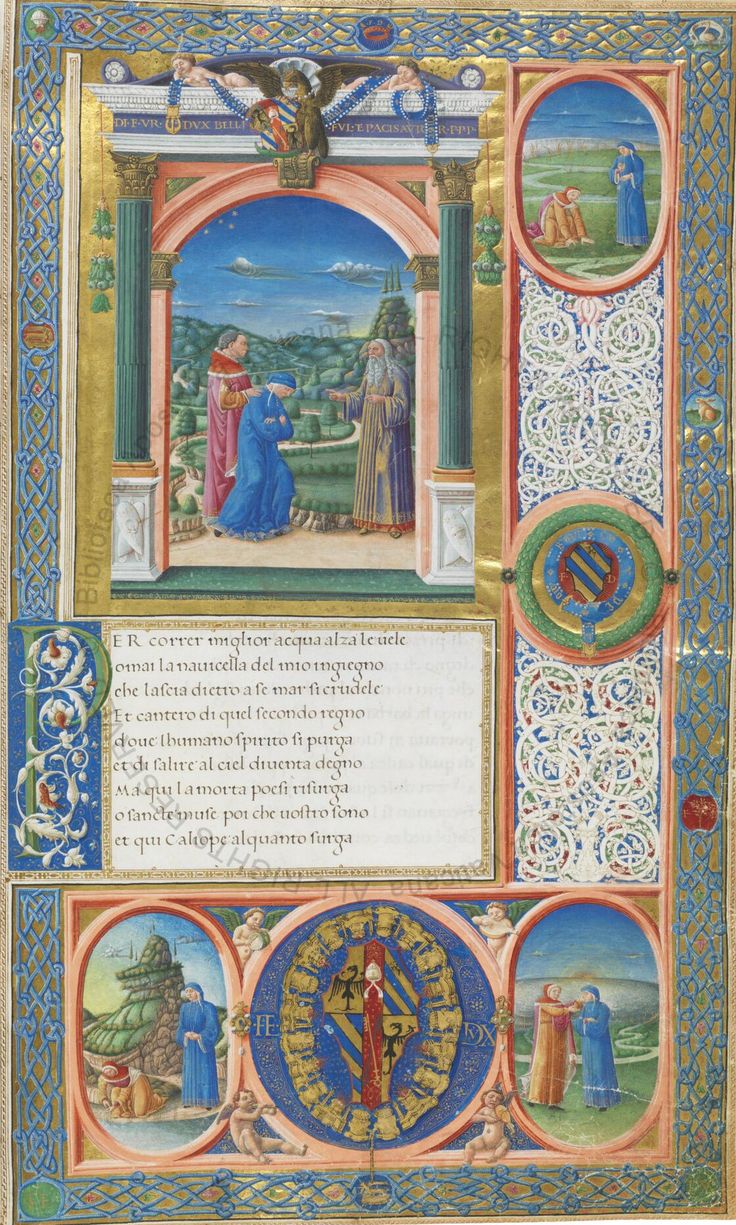 DI·F·VR DVX BELL
PER correr miglior acqua alza le uele
omai la nauicella del mio ingiegno
che lascia dietro a se mar si crudele
Et cantero di quel secondo regno
doue lhumano spirito si purga
et di salire al ciel diuenta degno
Ma qui la morta poesi risurga
o sancte muse poi che uostro sono
et qui Caliope alquanto surga
F D
FE DVX
ALL RIGHTS RESERVED